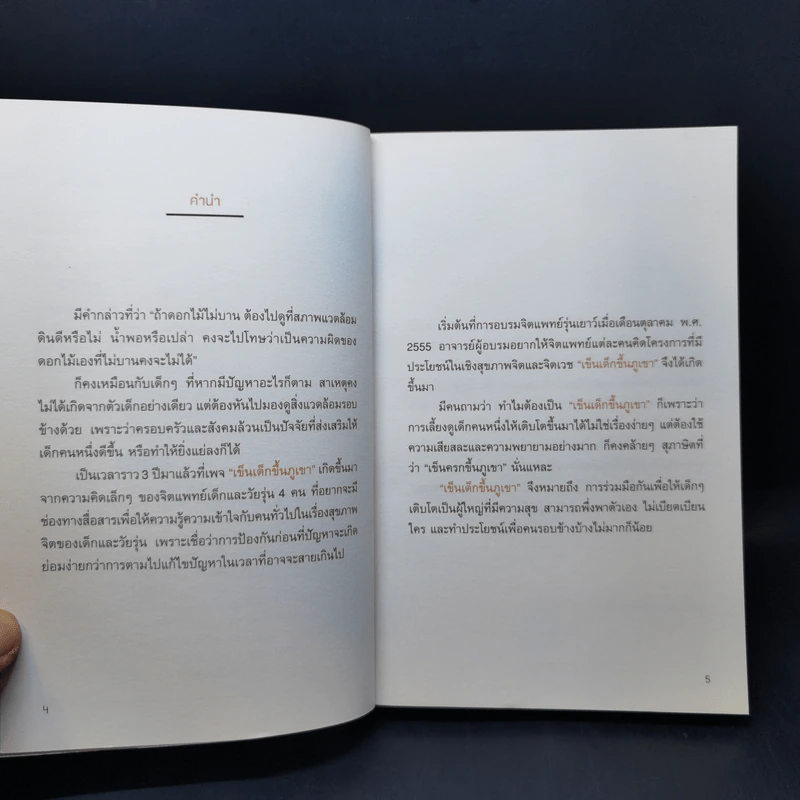 คำนำ
มีคำกล่าวที่ว่า “ถ้าดอกไม้ไม่บาน ต้องไปดูที่สภาพแวดล้อม
ดินดีหรือไม่ น้ำพอหรือเปล่า คงจะไปโทษว่าเป็นความผิดของ
ดอกไม้เองที่ไม่บานคงจะไม่ได้”
ก็คงเหมือนกับเด็กๆ ที่หากมีปัญหาอะไรก็ตาม สาเหตุคง
ไม่ได้เกิดจากตัวเด็กอย่างเดียว แต่ต้องหันไปมองดูสิ่งแวดล้อมรอบ
ข้างด้วย เพราะว่าครอบครัวและสังคมล้วนเป็นปัจจัยที่ส่งเสริมให้
เด็กคนหนึ่งดีขึ้น หรือทำให้ยิ่งแย่ลงก็ได้
เป็นเวลาราว 3 ปีมาแล้วที่เพจ “เข็นเด็กขึ้นภูเขา” เกิดขึ้นมา
จากความคิดเล็กๆ ของจิตแพทย์เด็กและวัยรุ่น 4 คน ที่อยากจะมี
ช่องทางสื่อสารเพื่อให้ความรู้ความเข้าใจกับคนทั่วไปในเรื่องสุขภาพ
จิตของเด็กและวัยรุ่น เพราะเชื่อว่าการป้องกันก่อนที่ปัญหาจะเกิด
ย่อมง่ายกว่าการตามไปแก้ไขปัญหาในเวลาที่อาจจะสายเกินไป
4
เริ่มต้นที่การอบรมจิตแพทย์รุ่นเยาว์เมื่อเดือนตุลาคม พ.ศ.
2555 อาจารย์ผู้อบรมอยากให้จิตแพทย์แต่ละคนคิดโครงการที่มี
ประโยชน์ในเชิงสุขภาพจิตและจิตเวช “เข็นเด็กขึ้นภูเขา” จึงได้เกิด
ขึ้นมา
มีคนถามว่า ทำไมต้องเป็น “เข็นเด็กขึ้นภูเขา” ก็เพราะว่า
การเลี้ยงดูเด็กคนหนึ่งให้เติบโตขึ้นมาได้ไม่ใช่เรื่องง่ายๆ แต่ต้องใช้
ความเสียสละและความพยายามอย่างมาก ก็คงคล้ายๆ สุภาษิตที่
ว่า “เข็นครกขึ้นภูเขา” นั่นแหละ
“เข็นเด็กขึ้นภูเขา” จึงหมายถึง การร่วมมือกันเพื่อให้เด็กๆ
เติบโตเป็นผู้ใหญ่ที่มีความสุข สามารถพึ่งพาตัวเอง ไม่เบียดเบียน
ใคร และทำประโยชน์เพื่อคนรอบข้างบ้างไม่มากก็น้อย
5